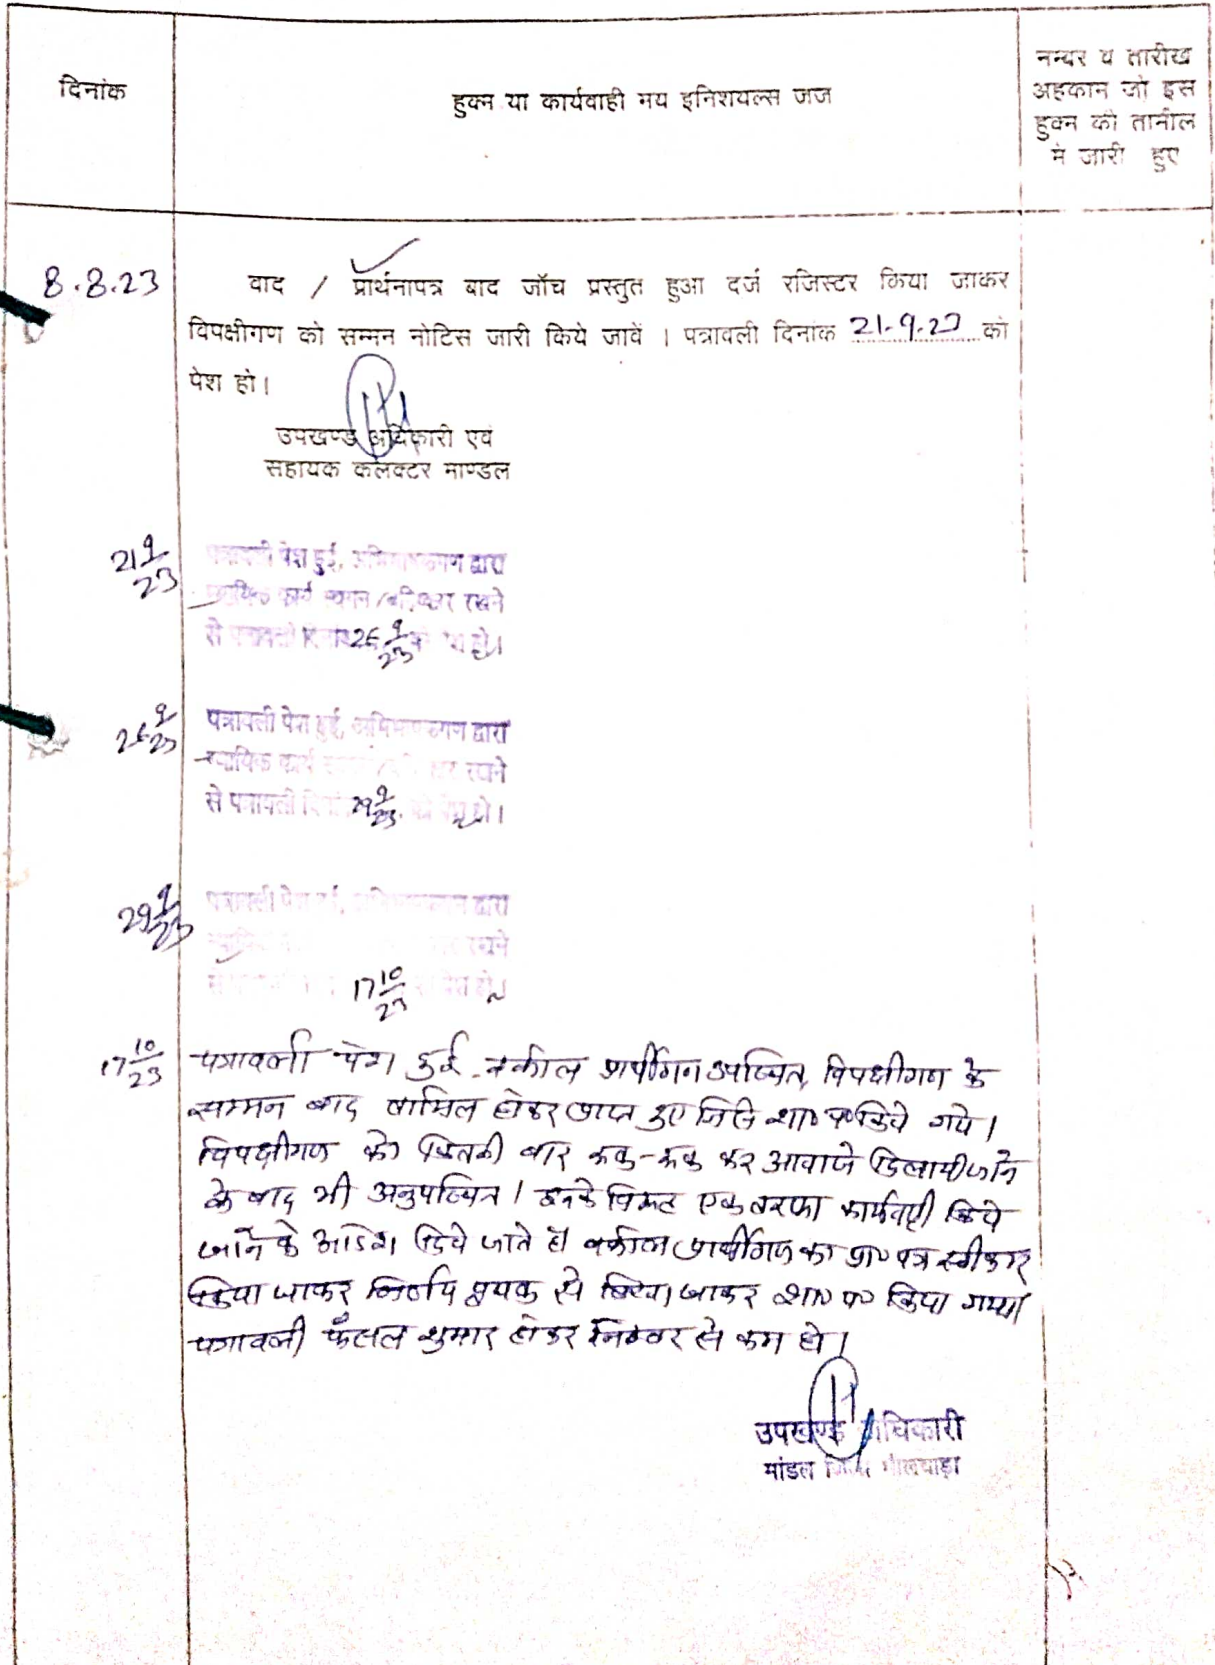 दिनांक
हुक्म या कार्यवाही मय इनिशयल्स जज
नम्बर व तारीख
अहकाम जो इस
हुक्म की तामील
में जारी हुए
8.8.23
वाद / प्रार्थनापत्र बाद जॉच प्रस्तुत हुआ दर्ज रजिस्टर किया जाकर
विपक्षीगण को सम्मन नोटिस जारी किये जावें । पत्रावली दिनांक 21.9.23 को
पेश हो।
उपखण्ड अधिकारी एवं
सहायक कलक्टर माण्डल
21 9/23
पत्रावली पेश हुई, अभिभाषकगण द्वारा
न्यायिक कार्य स्थगन / बहिष्कार रखने
से पत्रावली दिनांक 26 9/23 को पेश हो।
26 9/23
पत्रावली पेश हुई, अभिभाषकगण द्वारा
न्यायिक कार्य रखने
से पत्रावली दिनांक 29 9/23 को पेश हो।
29 9/23
पत्रावली पेश हुई, अभिभाषकगण द्वारा
रखने
17 10/23 पेश हो।
17 10/23
पत्रावली पेश हुई वकील प्रार्थीगन उपस्थित, विपक्षीगण के
सम्मन बाद तामिल होकर प्राप्त हुए जिसे शा० प० किये गये।
विपक्षीगण को कितनी बार रूक-रूक कर आवाजे दिलायी जाने
के बाद भी अनुपस्थित। इनके विरूद्ध एक तरफा कार्यवाही किये
जाने के आदेश दिये जाते है। वकील प्रार्थीगण का प्रा० पत्र स्वीकार
किया जाकर निर्णय पृथक से लिखा जाकर शा० प० किया गया।
पत्रावली फैसल शुमार होकर नम्बर से कम हो।
उपखण्ड अधिकारी
मांडल जिला भीलवाड़ा